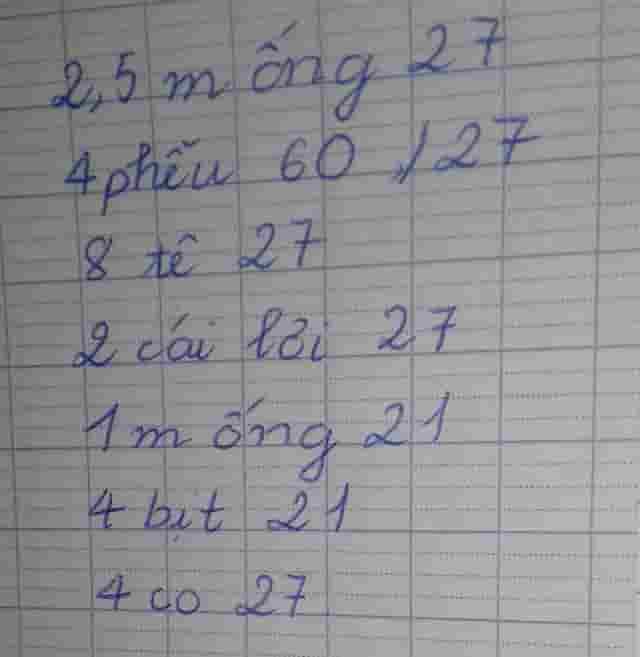 2,5 m ống 27
4 phễu 60 /27
8 tê 27
2 cái lơi 27
1 m ống 21
4 bịt 21
4 co 27